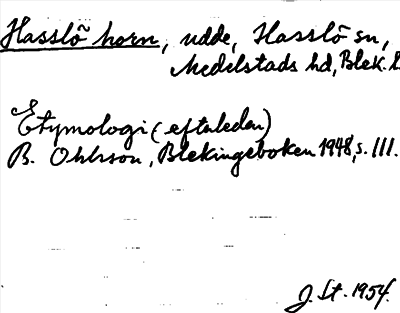 Hasslö horn, udde, Hasslö sn,
Medelstads hd, Blek. l
Etymologi (efterleden)
B. Ohlsson, Blekingeboken 1948, s. 111.
J. St. 1954.